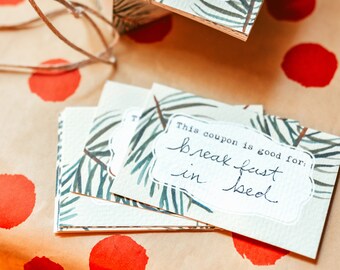 This coupon is good for:
breakfast
in bed
This